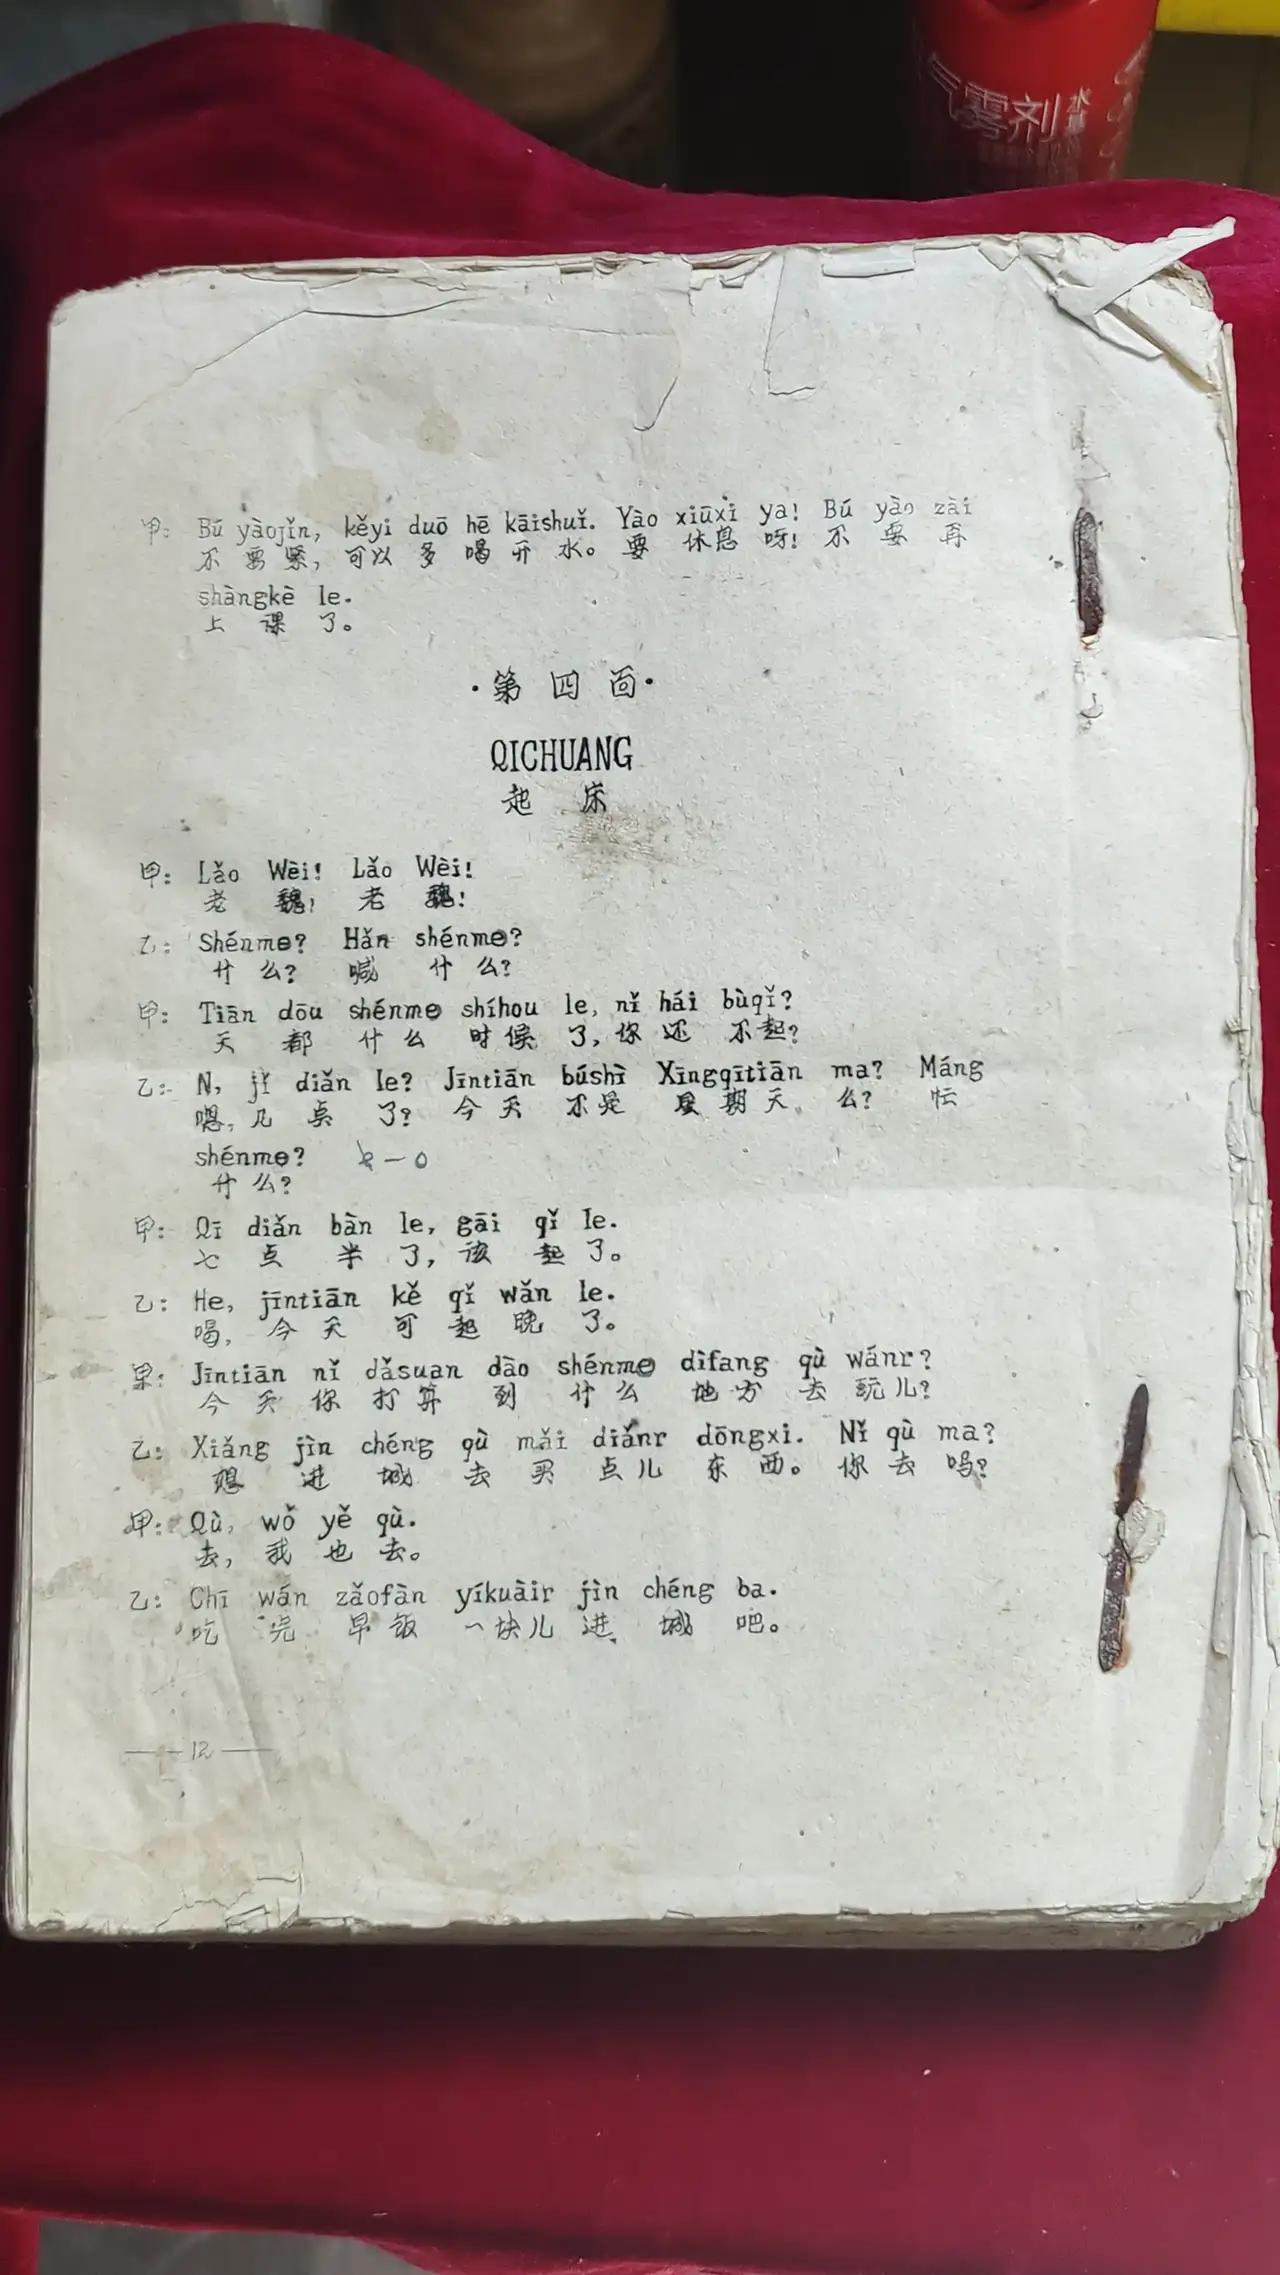 气雾剂
甲: Bú yàojǐn, kěyi duō hē kāishuǐ. Yào xiūxi ya! Bú yào zài
不要紧,可以多喝开水。要休息呀!不要再
shàngkè le.
上课了。
·第四面·
QICHUANG
起床
甲: Lǎo Wèi! Lǎo Wèi!
老魏!老魏!
乙: Shénme? Hǎn shénme?
什么?喊什么?
甲: Tiān dōu shénme shíhou le, nǐ hái bùqǐ?
天都什么时候了,你还不起?
乙: N, jǐ diǎn le? Jīntiān búshì Xīngqītiān ma? Máng
嗯,几点了?今天不是星期天么?忙
shénme?
什么?
甲: Qī diǎn bàn le, gāi qǐ le.
七点半了,该起了。
乙: He, jīntiān kě qǐ wǎn le.
喝,今天可起晚了。
甲: Jīntiān nǐ dǎsuan dào shénme dìfang qù wánr?
今天你打算到什么地方去玩儿?
乙: Xiǎng jìn chéng qù mǎi diǎnr dōngxi. Nǐ qù ma?
想进城去买点儿东西。你去吗?
甲: Qù, wǒ yě qù.
去,我也去。
乙: Chī wán zǎofàn yíkuàir jìn chéng ba.
吃完早饭一块儿进城吧。
—12—